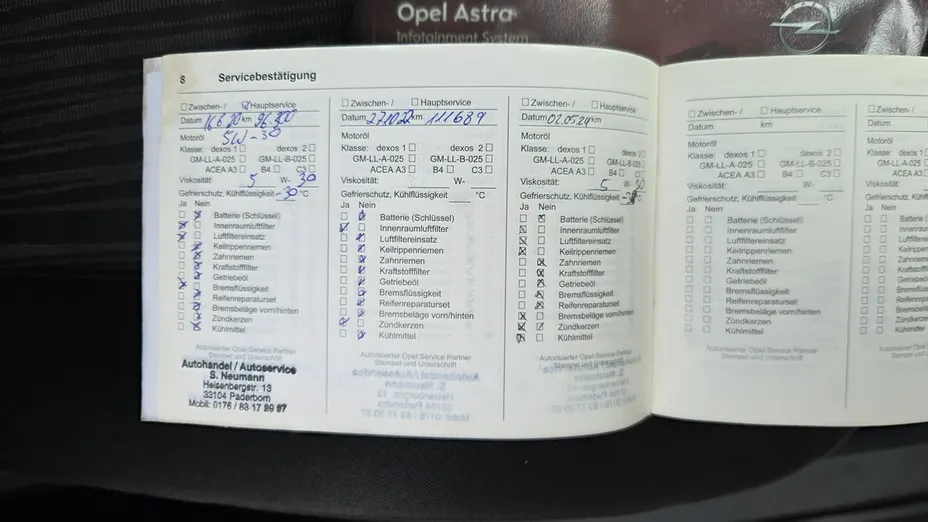 Opel Astra
Infotainment System
8 Servicebestätigung
Zwischen- / Hauptservice
Datum 16.6.20 km 96.300
Motoröl 5W-30
Klasse: dexos 1 dexos 2
GM-LL-A-025 GM-LL-B-025
ACEA A3 B4 C3
Viskosität: 5 W- 30
Gefrierschutz, Kühlflüssigkeit -30 °C
Ja Nein
Batterie (Schlüssel)
Innenraumluftfilter
Luftfiltereinsatz
Keilrippenriemen
Zahnriemen
Kraftstofffilter
Getriebeöl
Bremsflüssigkeit
Reifenreparaturset
Bremsbeläge vorn/hinten
Zündkerzen
Kühlmittel
Autorisierter Opel Service Partner
Stempel und Unterschrift
Autohandel / Autoservice
S. Neumann
Heisenbergstr. 13
33104 Paderborn
Zwischen- / Hauptservice
Datum 27.10.22 km 111689
Motoröl
Klasse: dexos 1 dexos 2
GM-LL-A-025 GM-LL-B-025
ACEA A3 B4 C3
Viskosität: W-
Gefrierschutz, Kühlflüssigkeit °C
Ja Nein
Batterie (Schlüssel)
Innenraumluftfilter
Luftfiltereinsatz
Keilrippenriemen
Zahnriemen
Kraftstofffilter
Getriebeöl
Bremsflüssigkeit
Reifenreparaturset
Bremsbeläge vorn/hinten
Zündkerzen
Kühlmittel
Autorisierter Opel Service Partner
Stempel und Unterschrift
Zwischen- / Hauptservice
Datum 02.05.24 km
Motoröl
Klasse: dexos 1 dexos 2
GM-LL-A-025 GM-LL-B-025
ACEA A3 B4 C3
Viskosität: 5 W- 30
Gefrierschutz, Kühlflüssigkeit °C
Ja Nein
Batterie (Schlüssel)
Innenraumluftfilter
Luftfiltereinsatz
Keilrippenriemen
Zahnriemen
Kraftstofffilter
Getriebeöl
Bremsflüssigkeit
Reifenreparaturset
Bremsbeläge vorn/hinten
Zündkerzen
Kühlmittel
Autorisierter Opel Service Partner
Stempel und Unterschrift
Zwischen- / Hauptservice
Datum km
Motoröl
Klasse: dexos 1 dexos 2
GM-LL-A-025 GM-LL-B-025
ACEA A3 B4 C3
Viskosität: W-
Gefrierschutz, Kühlflüssigkeit °C
Ja Nein
Batterie (Schlüssel)
Innenraumluftfilter
Luftfiltereinsatz
Keilrippenriemen
Zahnriemen
Kraftstofffilter
Getriebeöl
Bremsflüssigkeit
Reifenreparaturset
Bremsbeläge vorn/hinten
Zündkerzen
Kühlmittel
Autorisierter Opel Service Partner
Stempel und Unterschrift
Zwischen- /
Datum
Motoröl
Klasse: dexos 1
GM-LL-A-025
ACEA A3
Viskosität:
Gefrierschutz, Kühl
Ja Nein
Batterie
Innenrau
Luftfilter
Keilripp
Zahnrie
Kraftsto
Getrieb
Bremsfl
Reifenr
Bremsb
Zündke
Kühlmi